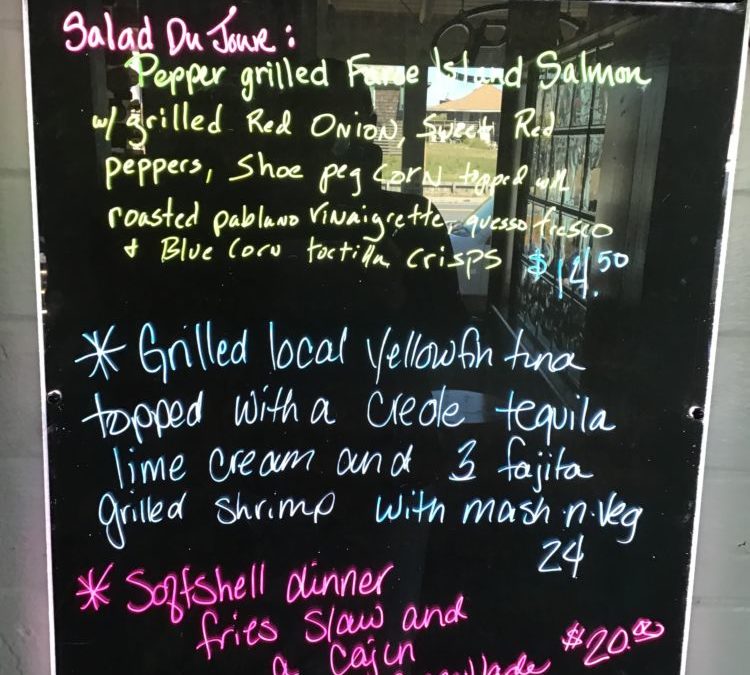 Salad Du Joure:
Pepper grilled Faroe Island Salmon
w/ grilled Red Onion, Sweet Red
peppers, Shoe peg Corn topped with
roasted pablano Vinaigrette, quesso fresco
+ Blue Corn tortilla crisps $14.50
* Grilled local Yellowfin tuna
topped with a Creole tequila
lime cream and 3 fajita
grilled shrimp with mash n veg
24
* Softshell dinner
fries slaw and
a Cajun
$20.00